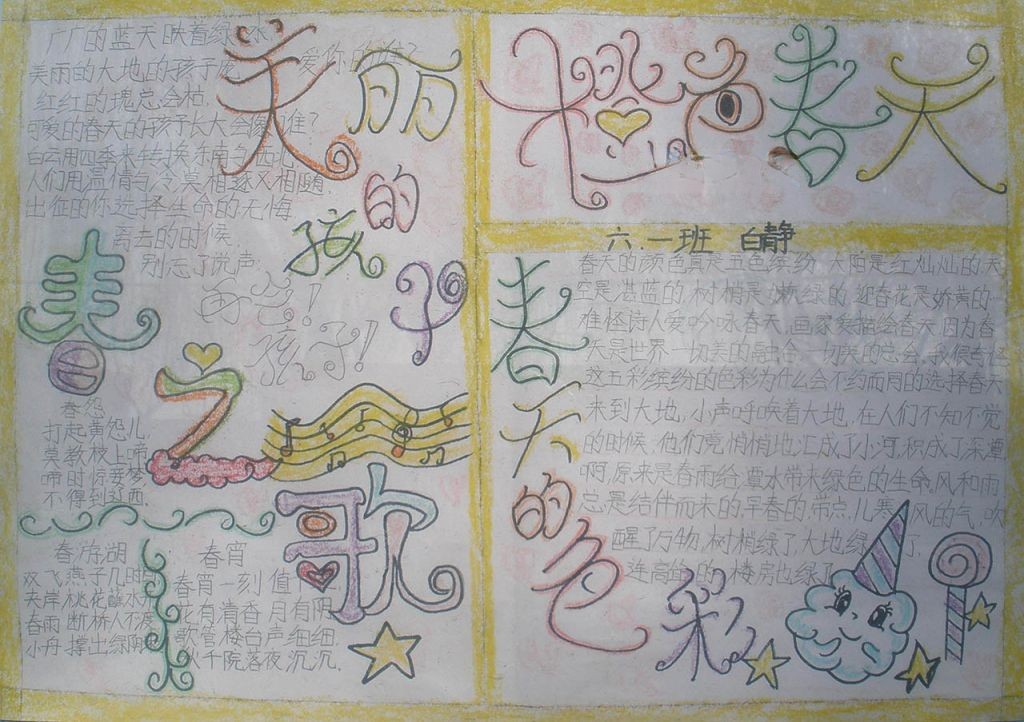 美丽的孩子
广广的蓝天映着绿水
爱你的谁?
美丽的大地的孩子
红红的瑰忘会枯,
可爱的春天的孩子长大会像谁?
白云用四季来转换东南与西北
人们用温情与冷莫相逐又相随
出征的你选择生命的无悔
离去的时候,
别忘了说声
再爸!
孩子!
春之歌
春怨
打起黄怨儿,
莫教枝上啼
啼时惊妾梦
不得到辽西.
春游湖
双飞燕子几时
夹岸桃花蘸水
春雨断桥人不渡
小舟撑出绿阴
春宵
春宵一刻值
花有清香月有阴
歌管楼台声细细
秋千院落夜沉沉.
春天
六.一班 白静
春天的色彩
春天的颜色真是五色缤纷,太阳是红灿灿的天
空是湛蓝的,树梢是嫩绿的,迎春花是娇黄的
难怪诗人爱吟咏春天,画家爱描绘春天,因为春
天是世界一切美的融合,一切美的忘会,我很奇怪
这五彩缤纷的色彩为什么会不约而同的选择春天
来到大地,小声呼唤着大地,在人们不知不觉
的时候,他们竟悄悄地汇成了小河,积成了深潭
啊,原来是春雨给潭水带来绿色的生命,风和雨
忘是结伴而来的,早春的,带点儿寒风的气,吹
醒了万物,树梢绿了,大地绿了,
连高的楼房也绿了